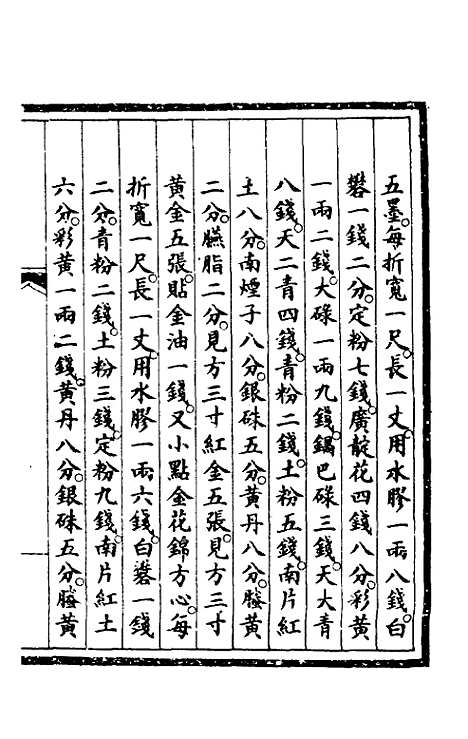 五墨。每折寬一尺。長一丈。用水膠一兩八錢。白
礬一錢二分。定粉七錢。廣靛花四錢八分。彩黃
一兩二錢。大碌一兩九錢。鍋巴碌三錢。天大青
八錢。天二青四錢。青粉二錢。土粉五錢。南片紅
土八分。南煙子八分。銀硃五分。黃丹八分。籐黃
二分。臙脂二分。見方三寸紅金五張。見方三寸
黃金五張。貼金油一錢。又小點金花錦方心。每
折寬一尺。長一丈。用水膠一兩六錢。白礬一錢
二分。青粉二錢。土粉三錢。定粉九錢。南片紅土
六分。彩黃一兩二錢。黃丹八分。銀硃五分。籐黃